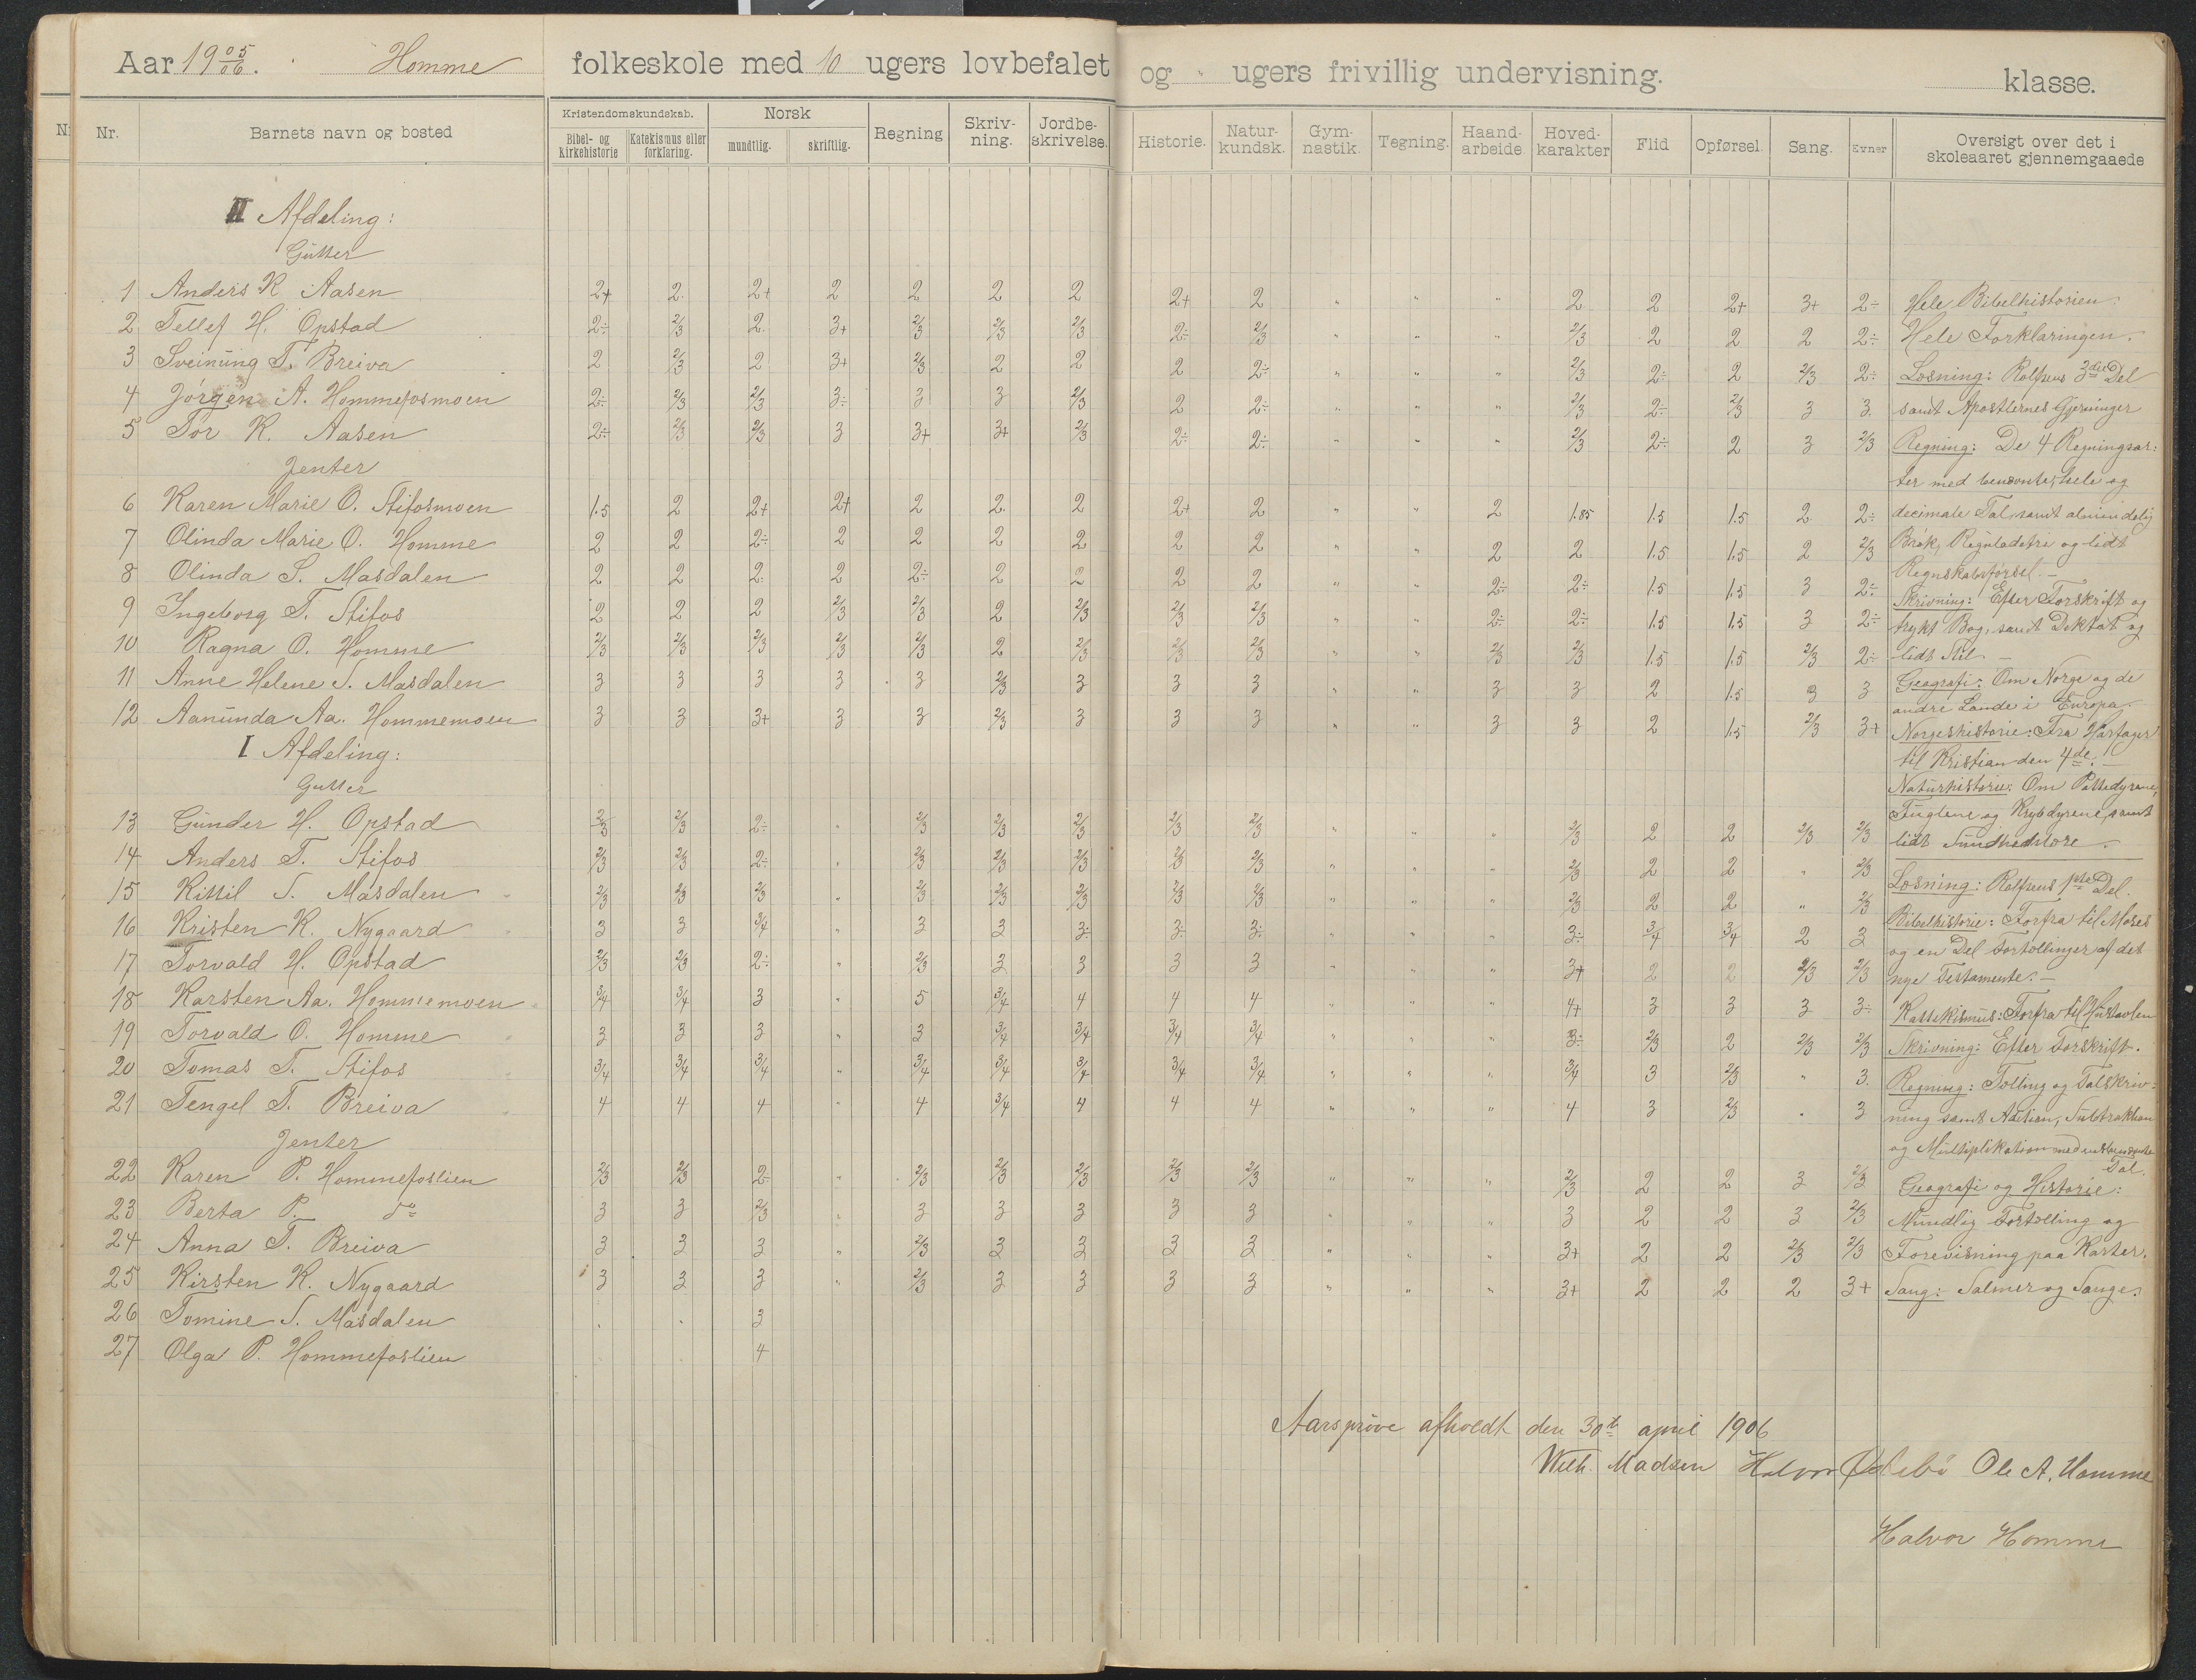 Aar 19 05/06. Homme folkeskole med 10 ugers lovbefalet og " ugers frivillig undervisning. klasse.
Nr. Barnets navn og bosted Kristendomskundskab. Bibel- og Kirkehistorie Katekismus eller forklaring. Norsk mundtlig. skriftlig. Regning Skriv-ning. Jordbe-skrivelse. Historie. Natur-kundsk. Gym-nastik. Tegning. Haand-arbeide Hoved-karakter Flid Opførsel. Sang. Evner Oversigt over det i skoleaaret gjennemgaaede
II Afdeling:
Gutter
1 Anders K Aasen 2+ 2. 2+ 2 2 2 2 2+ 2 " " " 2 2 2+ 3+ 2÷
2 Tellef H. Opstad 2÷ 2/3 2. 3+ 2/3 2/3 2/3 2÷ 2/3 " " " 2/3 2 2 2 2÷
3 Sveinung T. Breiva 2 2/3 2 3+ 2/3 2 2 2 2÷ " " " 2/3 2÷ 2 2/3 2÷
4 Jørgen A. Hommefosmoen 2÷ 2/3 2/3 3÷ 3 3 2/3 2 2÷ " " " 2/3 2÷ 2/3 3 3.
5 Tor K. Aasen 2÷ 2/3 2/3 3 3+ 3+ 2/3 2÷ 2÷ " " " 2/3 2÷ 2 3 2/3
Jenter
6 Karen Marie O. Stifosmoen 1.5 2 2+ 2+ 2 2. 2 2+ 2 " " 2 1.85 1.5 1.5 2 2÷
7 Olinda Marie O. Homme 2 2 2÷ 2 2 2 2 2 2 " " 2 2 1.5 1.5 2 2/3
8 Olinda S. Masdalen 2 2 2. 2 2÷ 2 2 2 2 " " 2÷ 2÷ 1.5 1.5 3 2÷
9 Ingeborg T. Stifos 2 2 2 2/3 2/3 2 2/3 2/3 2/3 " " 2÷ 2÷ 1.5 1.5 3 2÷
10 Ragna O. Homme 2/3 2/3 2/3 2/3 2/3 2 2/3 2/3 2/3 " " 2/3 2/3 1.5 1.5 2/3 2÷
11 Anne Helene S. Masdalen 3 3 3 3 3 2/3 3 3 3 " " 3 3 2 1.5 3 3
12 Aanunda Aa. Hommemoen 3 3 3+ 3 3 2/3 3 3 3 " " 3 3 2 1.5 2/3 3+
I Afdeling:
Gutter
13 Gunder H. Opstad 2/3 2/3 2÷ " 2/3 2/3 2/3 2/3 2/3 " " " 2/3 2 2 2/3 2/3
14 Anders T. Stifos 2/3 2/3 2÷ " 2/3 2/3 2/3 2/3 2/3 " " " 2/3 2 2 " 2/3
15 Kittil S. Masdalen 2/3 2/3 2/3 " 2/3 2/3 2/3 2/3 2/3 " " " 2/3 2 2 " 2/3
16 Kristen K. Nygaard 3 3 3/4 " 3 3 3÷ 3÷ 3÷ " " " 3÷ 3/4 3/4 2 3
17 Torvald H. Opstad 2/3 2/3 2÷ " 2/3 3 3 3 3 " " " 3+ 2 2 2/3 2/3
18 Karsten Aa. Hommemoen 3/4 3/4 3 " 5 3/4 4 4 4 " " " 4+ 3 3 3 3÷
19 Torvald O. Homme 3 3 3 " 3 3/4 3/4 3/4 3/4 " " " 3÷ 2/3 2 2/3 2/3
20 Tomas T. Stifos 3/4 3/4 3/4 " 3/4 3/4 3/4 3/4 3/4 " " " 3/4 3 2/3 " 3.
21 Tengel T. Breiva 4 4 4 " 4 3/4 4 4 4 " " " 4 3 2/3 . 3
Jenter
22 Karen P. Hommefoslien 2/3 2/3 2÷ " 2/3 2/3 2/3 2/3 2/3 " " " 2/3 2 2 3 2/3
23 Berta P. do 3 3 2/3 " 3 3 3 3 3 " " " 3 2 2 3 2/3
24 Anna T. Breiva 3 3 3 " 2/3 3 3 3 3 " " " 3+ 2 2 2/3 2/3
25 Kirsten K. Nygaard 3 3 3 " 2/3 3 3 3 3 " " " 3+ 2 2 2 3+
26 Tomine S. Masdalen . . 3
27 Olga P. Hommefoslien . . 4
Hele Bibelhistorien.
Hele Forklaringen.
Læsning: Rolfsens 3die Del
samt Apostlernes Gjerninger
Regning: De 4 Regningsar-
ter med benævnte, hele og
decimale Tal, samt almindelig
Brøk, Reguladetri og lidt
Regnskabsførsel. —
Skrivning: Efter Forskrift og
trykt Bog, samt Diktat og
lidt Stil —
Geografi: Om Norge og de
andre Lande i Europa.
Norgeshistorie: Fra Harfager
til Kristian den 4de. —
Naturhistorie: Om Pattedyrene,
Fuglene og Krybdyrene, samt
lidt Sundhedslære.
Læsning: Rolfsens 1ste Del.
Bibelhistorie: Forfra til Moses
og en Del Fortællinger af det
nye Testamente. —
Kattekismus: Forfra til Hustavlen
Skrivning: Efter Forskrift.
Regning: Tælling og Talskriv-
ning samt Adition, Subtraktion
og Multiplikation med ubenævnte
Tal.
Geografi og Historie:
Mundlig Fortælling og
Forevisning paa Karter.
Sang: Salmer og Sange.
Aarsprøve afholdt den 30te april 1906
Wilh. Madsen Halvor Ødebø Ole A. Homme
Halvor Homme